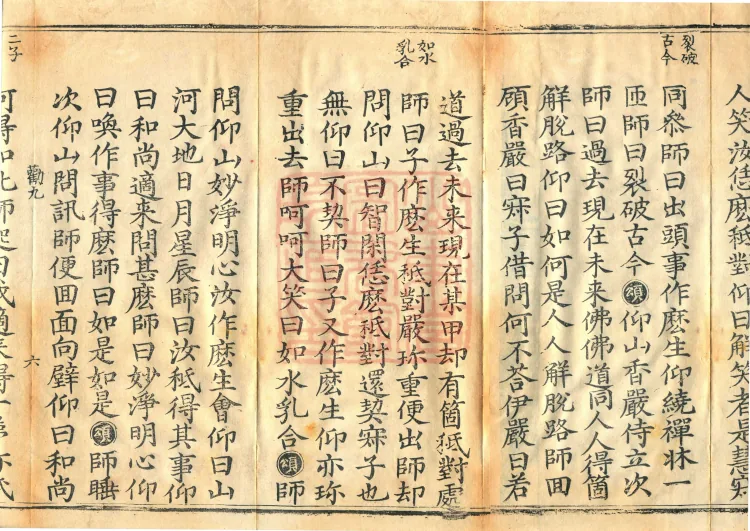 人笑汝恁麽秪對仰曰解笑者是慧寂
裂破
古今
同叅師曰出頭事作麽生仰繞禪牀一
匝師曰裂破古今頌仰山香嚴侍立次
師曰過去現在未来佛佛道同人人得箇
解脫路仰曰如何是人人解脫路師回
頋香嚴曰寂子借問何不荅伊嚴曰若
道過去未来現在某甲却有箇秪對處
如水
乳合
師曰子作麽生秪對嚴珎重便出師却
問仰山曰智閑恁麽秪對還契寂子也
無仰曰不契師曰子又作麽生仰亦珎
重出去師呵呵大笑曰如水乳合頌師
問仰山妙淨明心汝作麽生會仰曰山
河大地日月星辰師曰汝秪得其事仰
曰和尚適来問甚麽師曰妙淨明心仰
曰喚作事得麽師曰如是如是頌師睡
次仰山問訊師便回面向壁仰曰和尚
勸九
六
二子
何得如此師起曰我適来得一